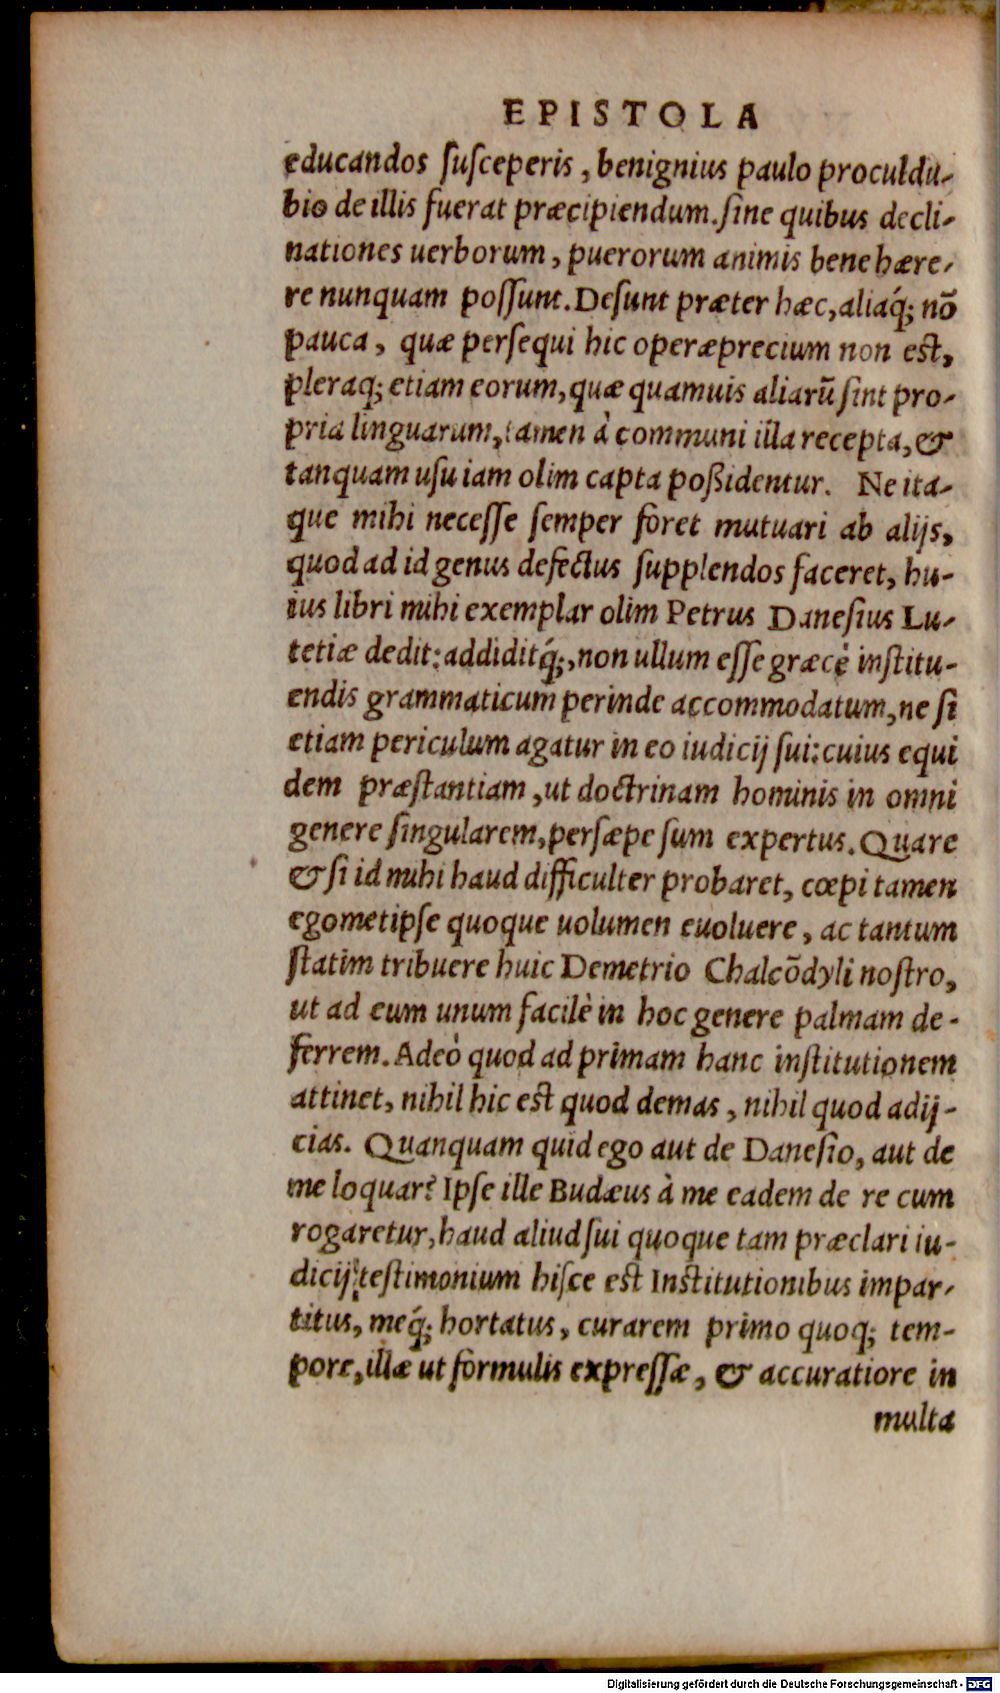 EPISTOLA
educandos ſuſceperis, benignius paulo proculdu-
bio de illis fuerat præcipiendum. ſine quibus decli-
nationes uerborum, puerorum animis bene hære-
re nunquam poſſunt. Deſunt præter hæc, aliaq́; nō
pauca, quæ perſequi hic operæprecium non est,
pleraq; etiam eorum, quæ quamuis aliarū ſint pro-
pria linguarum, tamen à communi illa recepta, &
tanquam uſu iam olim capta poßidentur. Ne ita-
que mihi neceſſe ſemper foret mutuari ab alijs,
quod ad id genus defectus ſupplendos faceret, hu-
ius libri mihi exemplar olim Petrus Daneſius Lu-
tetiæ dedit: addiditq́;, non ullum eſſe græcè inſtitu-
endis grammaticum perinde accommodatum, ne ſi
etiam periculum agatur in eo iudicij ſui: cuius equi
dem præſtantiam, ut doctrinam hominis in omni
genere ſingularem, perſæpe ſum expertus. Quare
& ſi id mihi haud difficulter probaret, cœpi tamen
egometipſe quoque uolumen euoluere, ac tantum
ſtatim tribuere huic Demetrio Chalcōdyli noſtro,
ut ad eum unum facilè in hoc genere palmam de-
ferrem. Adeò quod ad primam hanc inſtitutionem
attinet, nihil hic est quod demas, nihil quod adij-
cias. Quanquam quid ego aut de Daneſio, aut de
me loquar? Ipſe ille Budæus à me eadem de re cum
rogaretur, haud aliud ſui quoque tam præclari iu-
dicij teſtimonium hiſce est Inſtitutionibus impar-
titus, meq́; hortatus, curarem primo quoq; tem-
pore, illæ ut formulis expreſſæ, & accuratiore in
multa
Digitalisierung gefördert durch die Deutsche Forschungsgemeinschaft - DFG